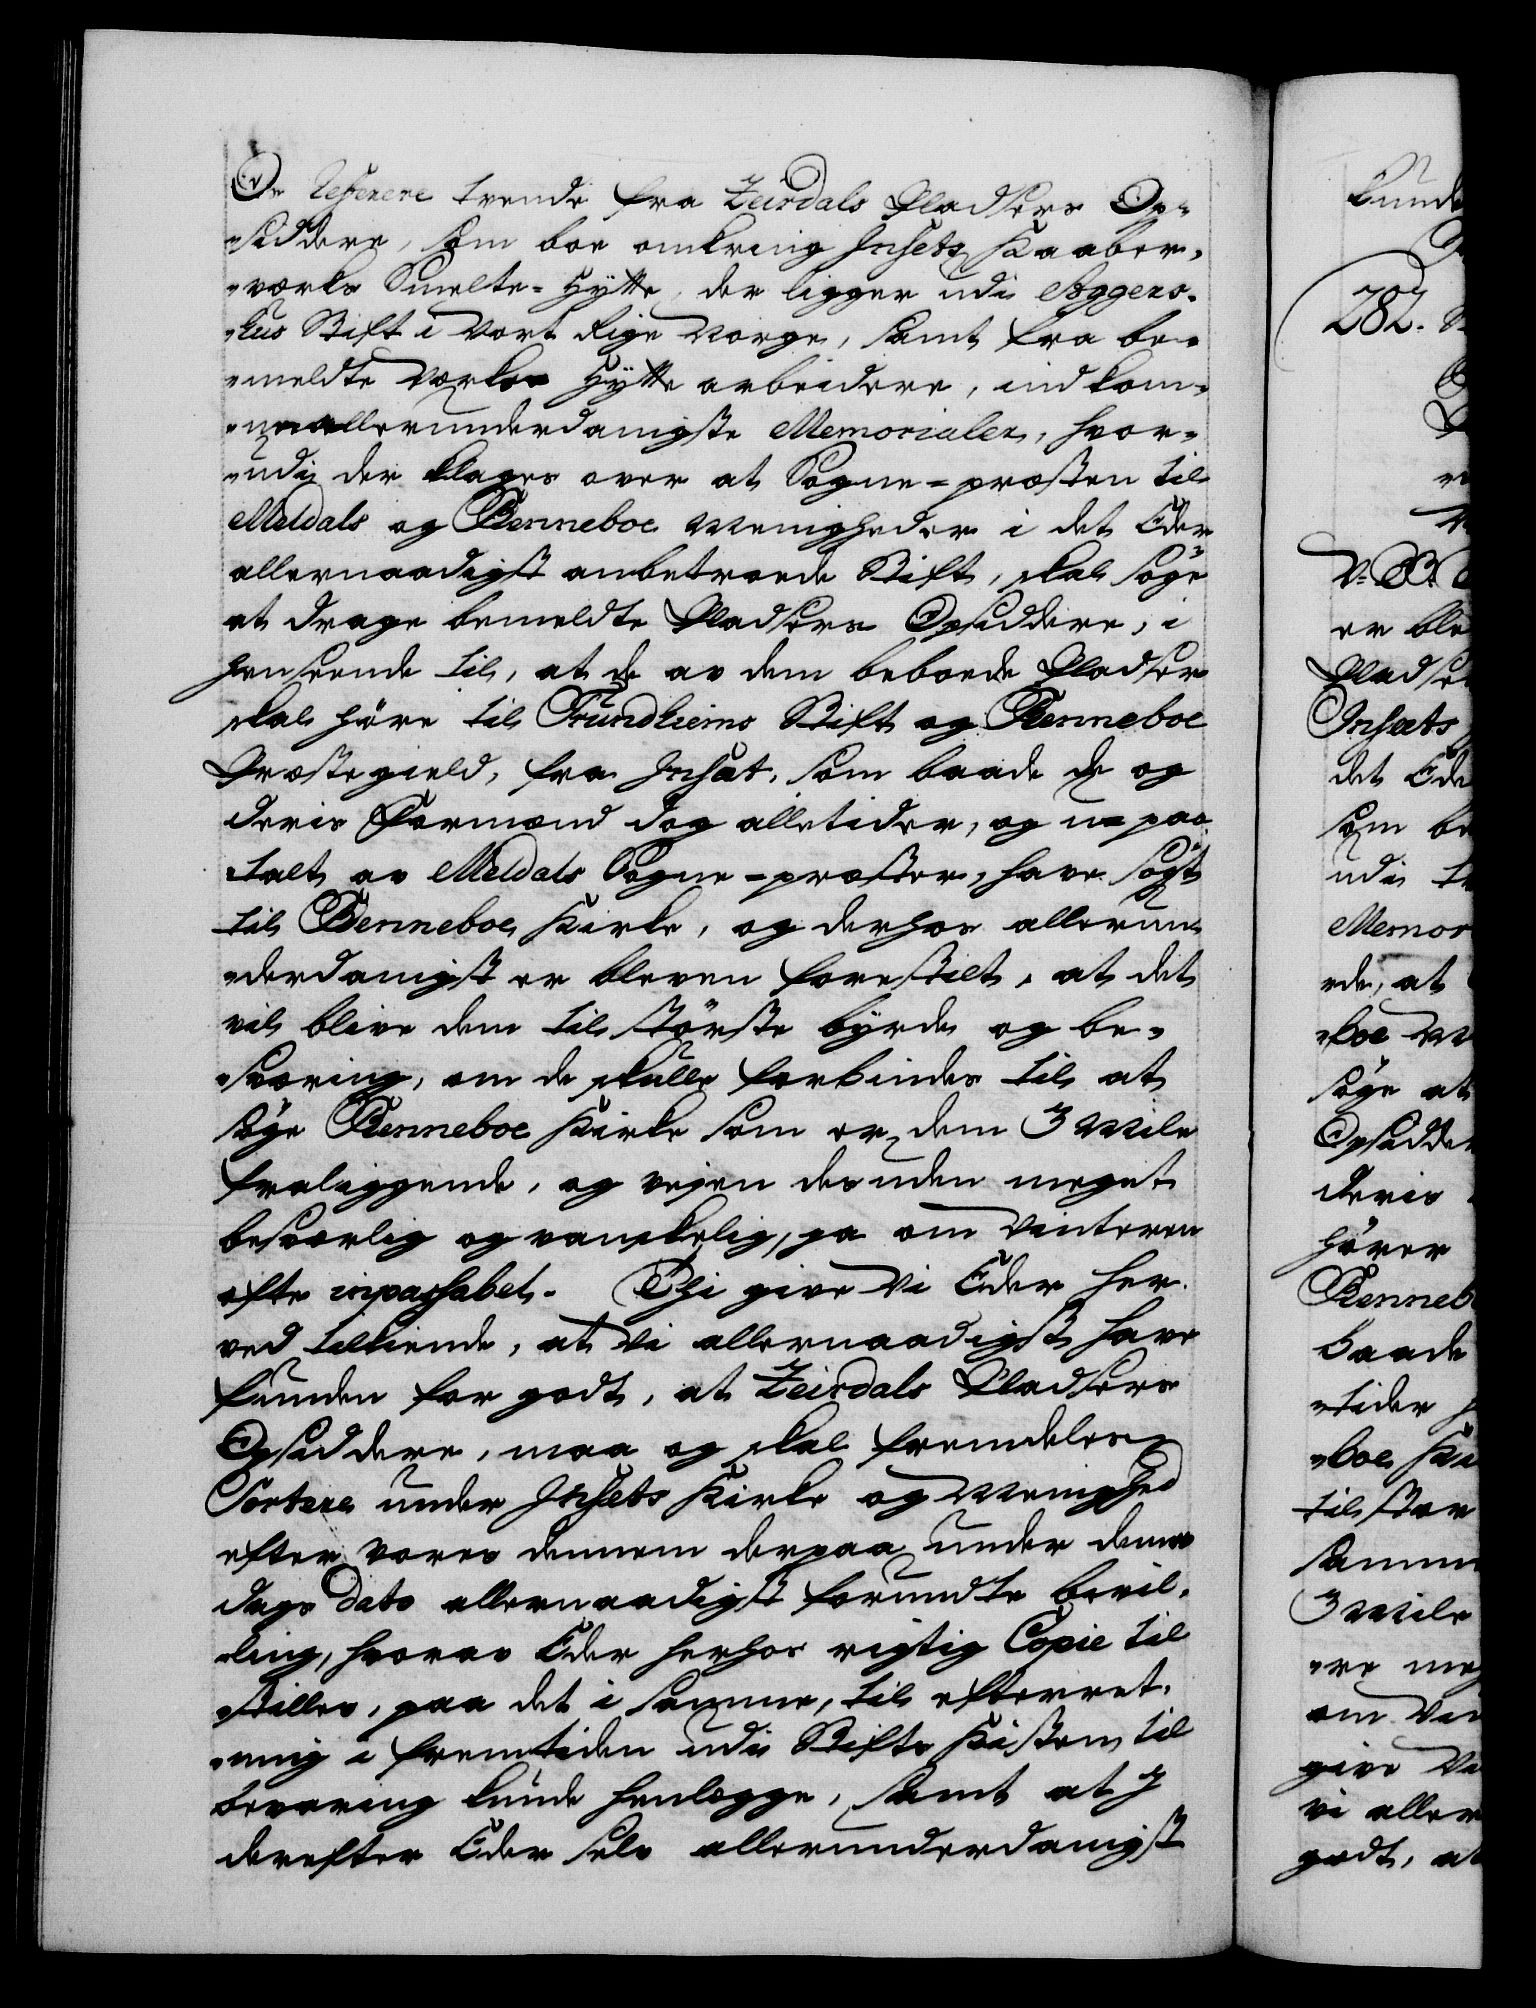 Er Referere tvende fra Zeirdals Pladsers Op=
=siddere, som boe omkring Insets Kaaber=
=værks Smelte=Hytte, der ligger udi Aggers=
=huus Stift i Vort Rige Norge, samt fra be=
=meldte Værkes Hytte arbeidere, indkom=
=ne allerunderdanigste Memorialer, hvor=
=udi der klages over at Sogne=præsten til
Meldals og Renneboe Menigheder i det Eder
allernaadigst anbetroede Stift, skal søge
at drage bemeldte Pladsers Opsiddere, i
henseende til, at de av dem beboede Pladser
skal høre til Trundhiems Stift og Renneboe
Præstegield, fra Inset, som baade de og
deris Formænd dog alletider, og u=paa
talt av Meldals Sogne=præster, have søgt
til Renneboe Kirke, og derhos allerun
=derdanigst er bleven forestilt, at det
vil blive dem til største byrde og be=
=sværing, om de skulle forbindes til at
søge Renneboe Kirke som er dem 3 Mile
fraliggende, og vejen desuden meget
besværlig og vanskelig, ja om Vinteren
ofte inpassabel. Thi give Vi Eder her
ved tilkiende, at Vi allernaadigst have
funden for godt, at Zeirdals Pladsers
Opsiddere, maa og skal fremdeles
Sortere under Insets Kirke og Menighed
efter Vores dennem derpaa under denne
dags Dato allernaadigst forundte bevil=
=ling, hvorav Eder herhos rigtig Copie til
=stilles, paa det i samme, til efterret=
=ning i fremtiden udi Stifts Kisten til
bevaring kunde henlegge, samt at I
derefter Eder selv allerunderdanigst
282.
N. B.
er ble
Pladse
Insets
det Ede
som bo
udi
Memor
rde, at
=boe M
søge at
Opsidde
deris
hører
Renneb
baade
=tider
=boe Ki
til stør
samm
3 Mile
=re meg
om Vin
give Vi
vi aller
godt, at